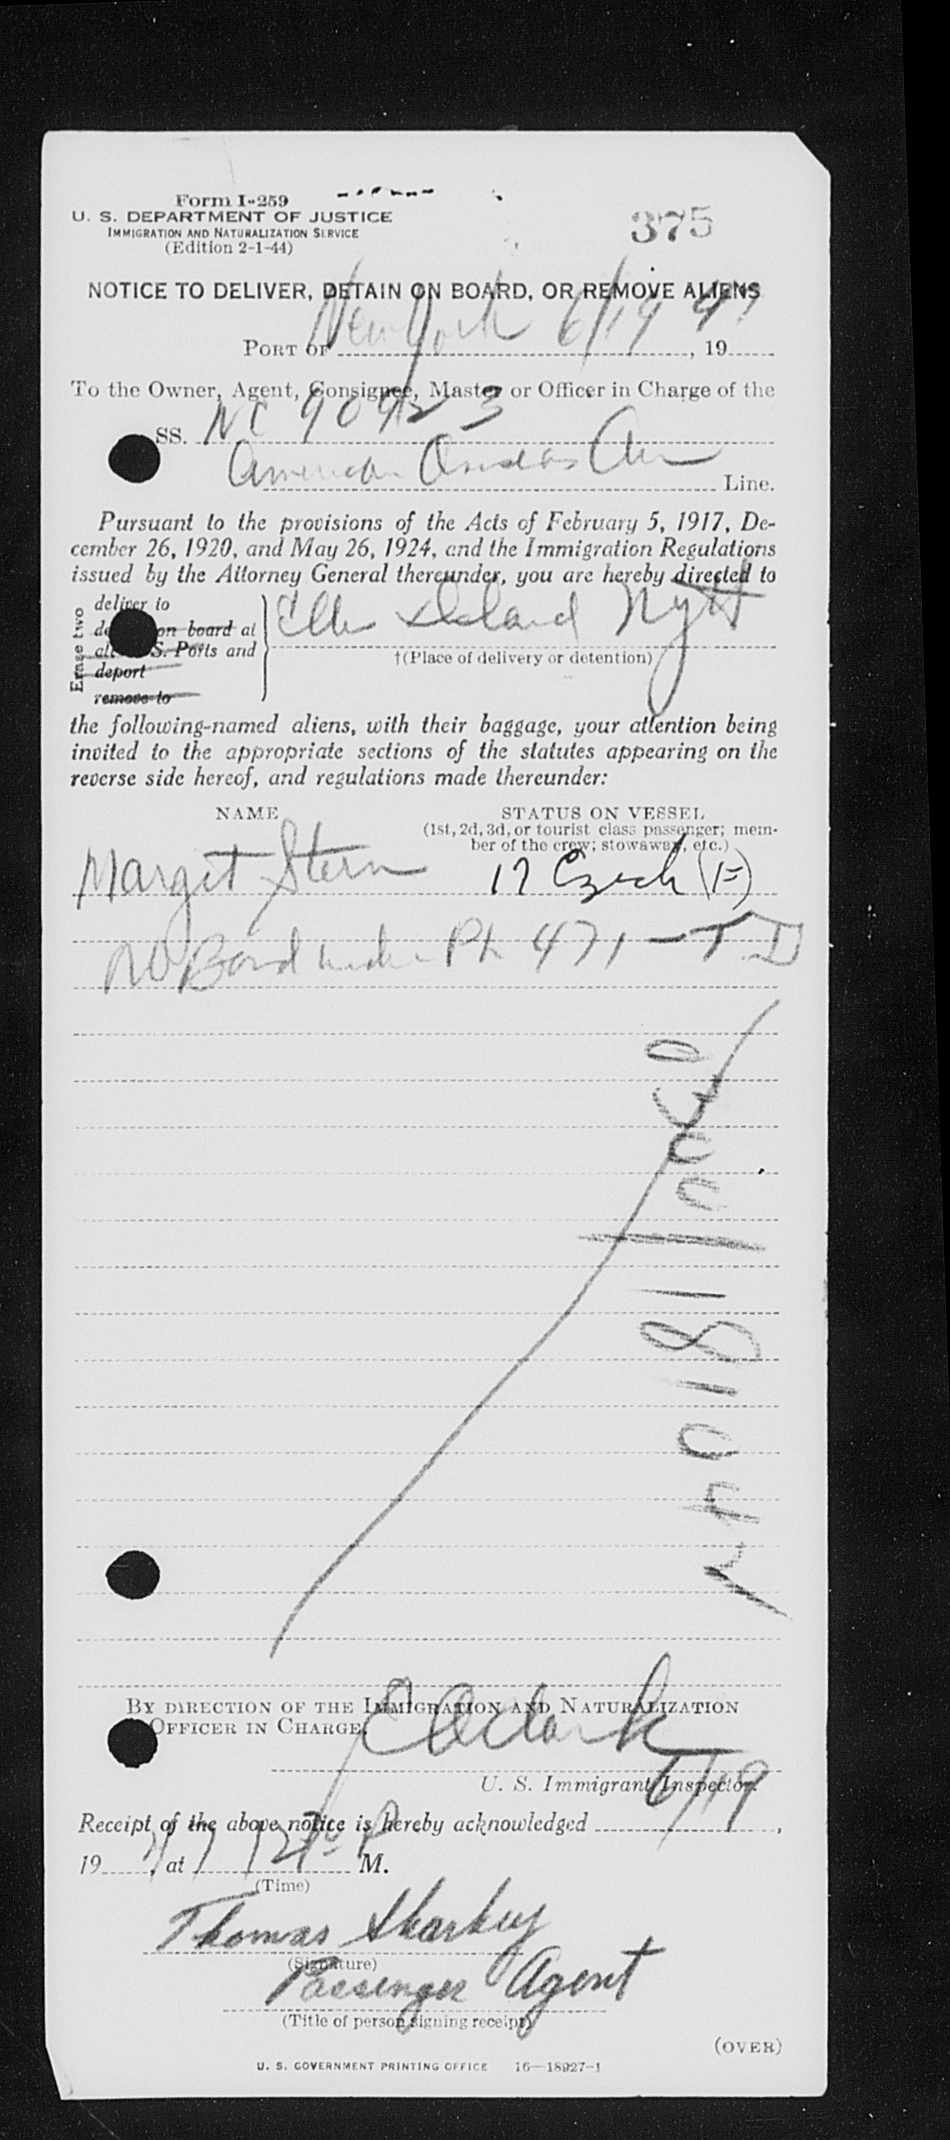 Form I-259
U. S. DEPARTMENT OF JUSTICE
IMMIGRATION AND NATURALIZATION SERVICE
(Edition 2-1-44)
375
NOTICE TO DELIVER, DETAIN ON BOARD, OR REMOVE ALIENS
PORT OF New York 6/19, 1947
To the Owner, Agent, Consignee, Master or Officer in Charge of the
SS. NC 90923
American Overseas Air Line.
Pursuant to the provisions of the Acts of February 5, 1917, De-
cember 26, 1920, and May 26, 1924, and the Immigration Regulations
issued by the Attorney General thereunder, you are hereby directed to
Erase two
deliver to
on board at
S. Ports and
deport
remove to
Ellis Island NYH
†(Place of delivery or detention)
the following-named aliens, with their baggage, your attention being
invited to the appropriate sections of the statutes appearing on the
reverse side hereof, and regulations made thereunder:
NAME
STATUS ON VESSEL
(1st, 2d, 3d, or tourist class passenger; mem-
ber of the crew; stowaway, etc.)
Margit Stern 17 Czech (F)
No Bond under Ph 471 - T.D
BY DIRECTION OF THE IMMIGRATION AND NATURALIZATION
OFFICER IN CHARGE.
E A Clark
U. S. Immigrant Inspector.
Receipt of the above notice is hereby acknowledged 6/19,
1947, at P M.
(Time)
Thomas Sharkey
(Signature)
Passenger Agent
(Title of person signing receipt)
(OVER)
U. S. GOVERNMENT PRINTING OFFICE 16—18927-1